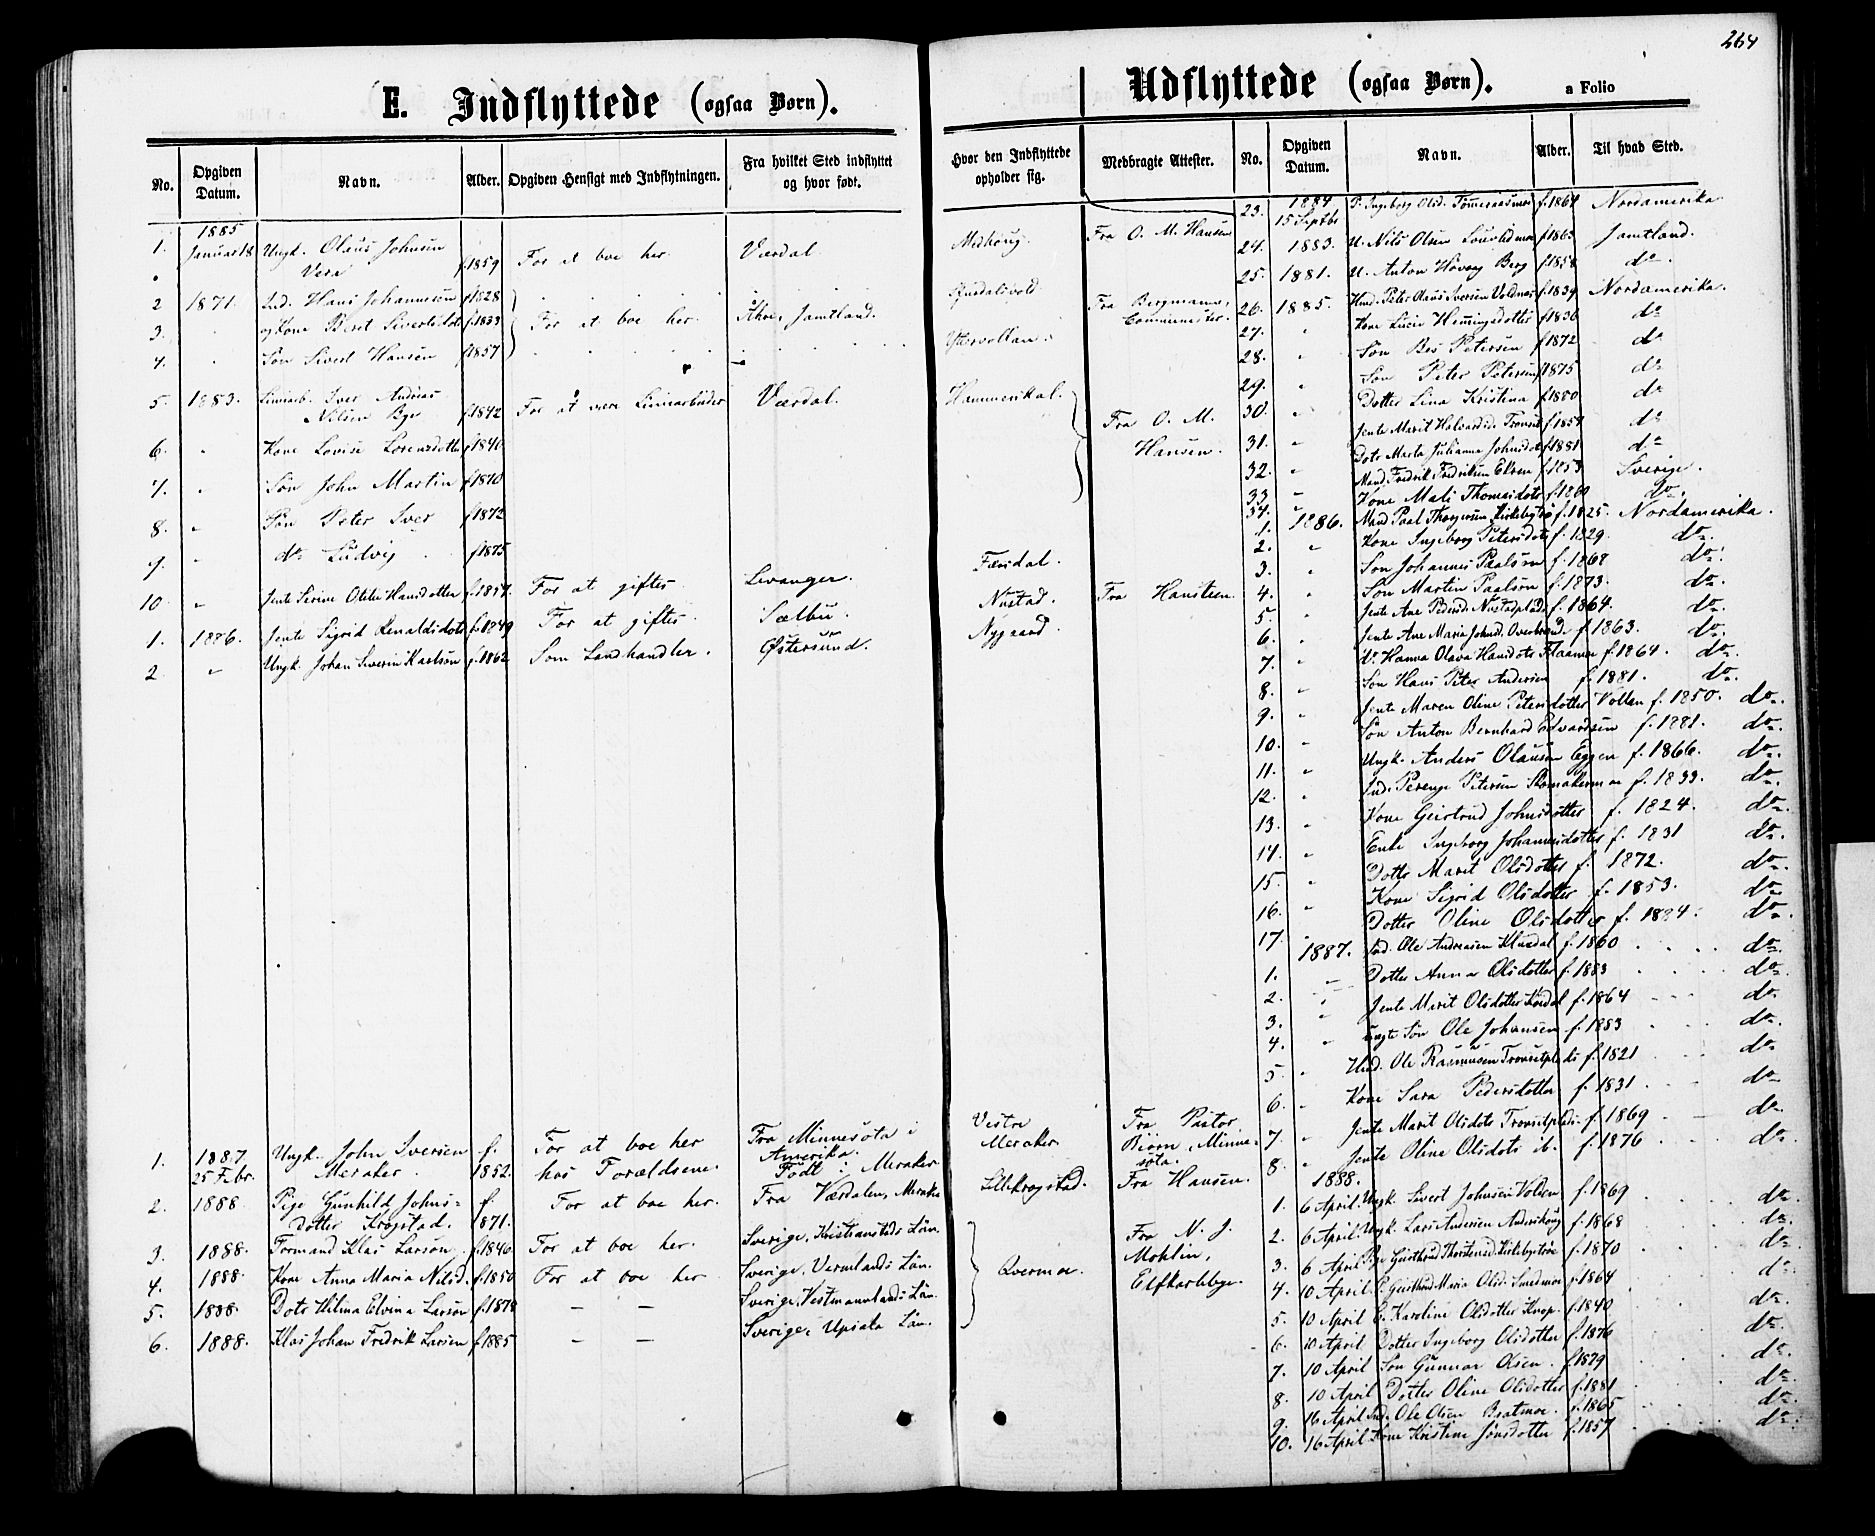 264
E. Indflyttede (ogsaa Børn).
No. Opgiven Datum. Navn. Alder. Opgiven Hensigt med Indflytningen. Fra hvilket Sted indflyttet og hvor født. Hvor den Indflyttede opholder sig. Medbragte Attester.
1. 1885 Januar 18 Ungk. Olaus Johnsen Vera f1859 For at boe her. Værdal. Medhoug. Fra O. M. Hansen
2 1871. Ind. Hans Johannesen f1828
3. og Kone Beret Sivertsdot. f.1833 For at boe her. Åhre, Jamtland. Fra Bergmann, Comminister.
4. Søn Sivert Hansen f1857
5. 1883. Iver Andreas Nilsen Bye f.1842 For at være Liniearbeider Værdal. Hammerskal. Fra O. M. Hansen.
6. Kone Lovise Lorentsdotter f1840
7. Søn John Martin f1870
8. Søn Peter Iver f1872
9. do Ludvig f1875
10. Jente Serine Otelie Hansdotter f.1857 For at giftes Levanger. Færsdal.
1. 1886. Jente Sigrid Renaldsdotr f.1849 For at giftes Sælbu. Nustad. Fra Hansteen.
2 Ungk. Johan Severin Karlson f.1862 Som Landhandler. Østersund. Nygaard.
1. 1887. 25 Febr. Ungk. John Iversen Meraker. f. 1852. For at boe her hos Forældrene. Fra Minnesota i Amerika. Født i Meraker Vestre Meraker Fra Pastor Biørn, Minnesota.
2. 1888. Pige Gunhild Johnsdotter Krogstad. f. 1871. For at boe her. Fra Værdalen, Meraker Lillekrogstad. Fra Hansen.
3. 1888. Formand Klas Larson f.1846 For at boe her. Sverige, Kristianstads Län.
4. 1888. Kone Anna Maria Nilsd. f.1850 For at boe her Sverige, Vermlands Län. Qvernmoe. Fra N. J. Mohlin, Elfkarleby.
5. 1888. Dotr Hilma Elvina Larson f.1878 — — Sverige, Vestmannlands Län.
6. 1888. Klas Johan Fredrik Larsen f.1885 — — Sverige, Upsala Län.
Udflyttede (ogsaa Børn).
a Folio
No. Opgiven Datum. Navn. Alder. Til hvad Sted.
23. 1884 15 Septbr P. Ingeborg Olsd. f.1864 Nordamerika
24. 1883. U. Nils Olsen f1863 Jamtland.
25. 1881. U. Anton Hovorg Berg f1858 do.
26. 1885. Hmd. Peter Olaus Iversen Voldmo f1839 Nordamerika.
27. Kone Lucie Hemmingsdotter f1836 do
28. Søn Bes Petersen f1872 do
29. Søn Peter Petersen f1875 do
30. Dotter Lina Kristina f1880 do
31. Jente Marit Halvardsd. f1857 do
32. Dotr Marta Julianna Johnsd. f1881 do
33. Mand Fredrik Fredriksen f1853 Sverige.
34. Kone Mali Thomasdotr f.1860 do.
1. 1886. Mand Paal Thorgersen Kirkebytrø f.1825. Nordamerika.
2. Kone Ingeborg Petersdotr f.1829. do.
3. Søn Johannes Paalsen f.1868 do.
4. Søn Martin Paalsen f.1873. do.
5. Jente Ane Pedersd. Nustadplads f.1864. do.
6. Jente Ane Maria Johnsd. f.1863. do.
7. do Hanna Olava Hansdotr Flaamo f.1864. do.
8. Søn Hans Peter Andersen f.1881. do.
9. Jente Maren Oline Petersdotter Vollan f.1850. do.
10. Søn Anton Bernhard Edvardsen f.1881. do.
11. Ungk. Anders Olausen Eggen f.1866. do.
12. Ind. Petersen f.1833. do.
13. Kone Geirtrud Johnsdotter f.1824. do.
14. Enke Ingeborg Johannesdotter f.1831 do.
15. Dotter Marit Olsdotter f.1872. do.
16. Kone Sigrid Olsdotter f.1853. do.
17. Dotter Oline Olsdotter f.1884. do.
1. 1887. Ind. Ole Andreasen f.1860 do.
2. Dotter Anna Olsdotter f.1883 do.
3. Jente Marit Olsdotter f.1864 do.
4. uægte Søn Ole Johansen f.1883 do.
5. Hmd. Ole Rasmusen f.1821 do.
6. Kone Sara Pedersdotter f.1831. do.
7. Jente Marit Olsdotr f.1869 do.
8. Jente Oline Olsdotr ib. f.1876 do.
1888.
1. 6 April. Ungk. Sivert Johnsen Volden f.1869 do.
2. 6 April. Ungk. Lars Andersen f.1868 do.
3. 6 April Pige Geirtrud Thorstensd. Kirkebytrøe f.1870 do.
4. 10 April. P. Geirtrud Maria Olsd. Smedmoe f.1864 do.
5. 10 April E. Karoline Olsdotter Knop. f.1840 do.
6. 10 April Dotter Ingeborg Olsdotter f.1876 do.
7. 10 April Søn Gunnar Olsen. f.1879 do.
8. 10 April Dotter Oline Olsdotter f.1881 do.
9. 16 April Ind. Ole Olsen Bratmoe. f.1865 do.
10. 16 April Kone Kristine Jonsdotter f.1857 do.